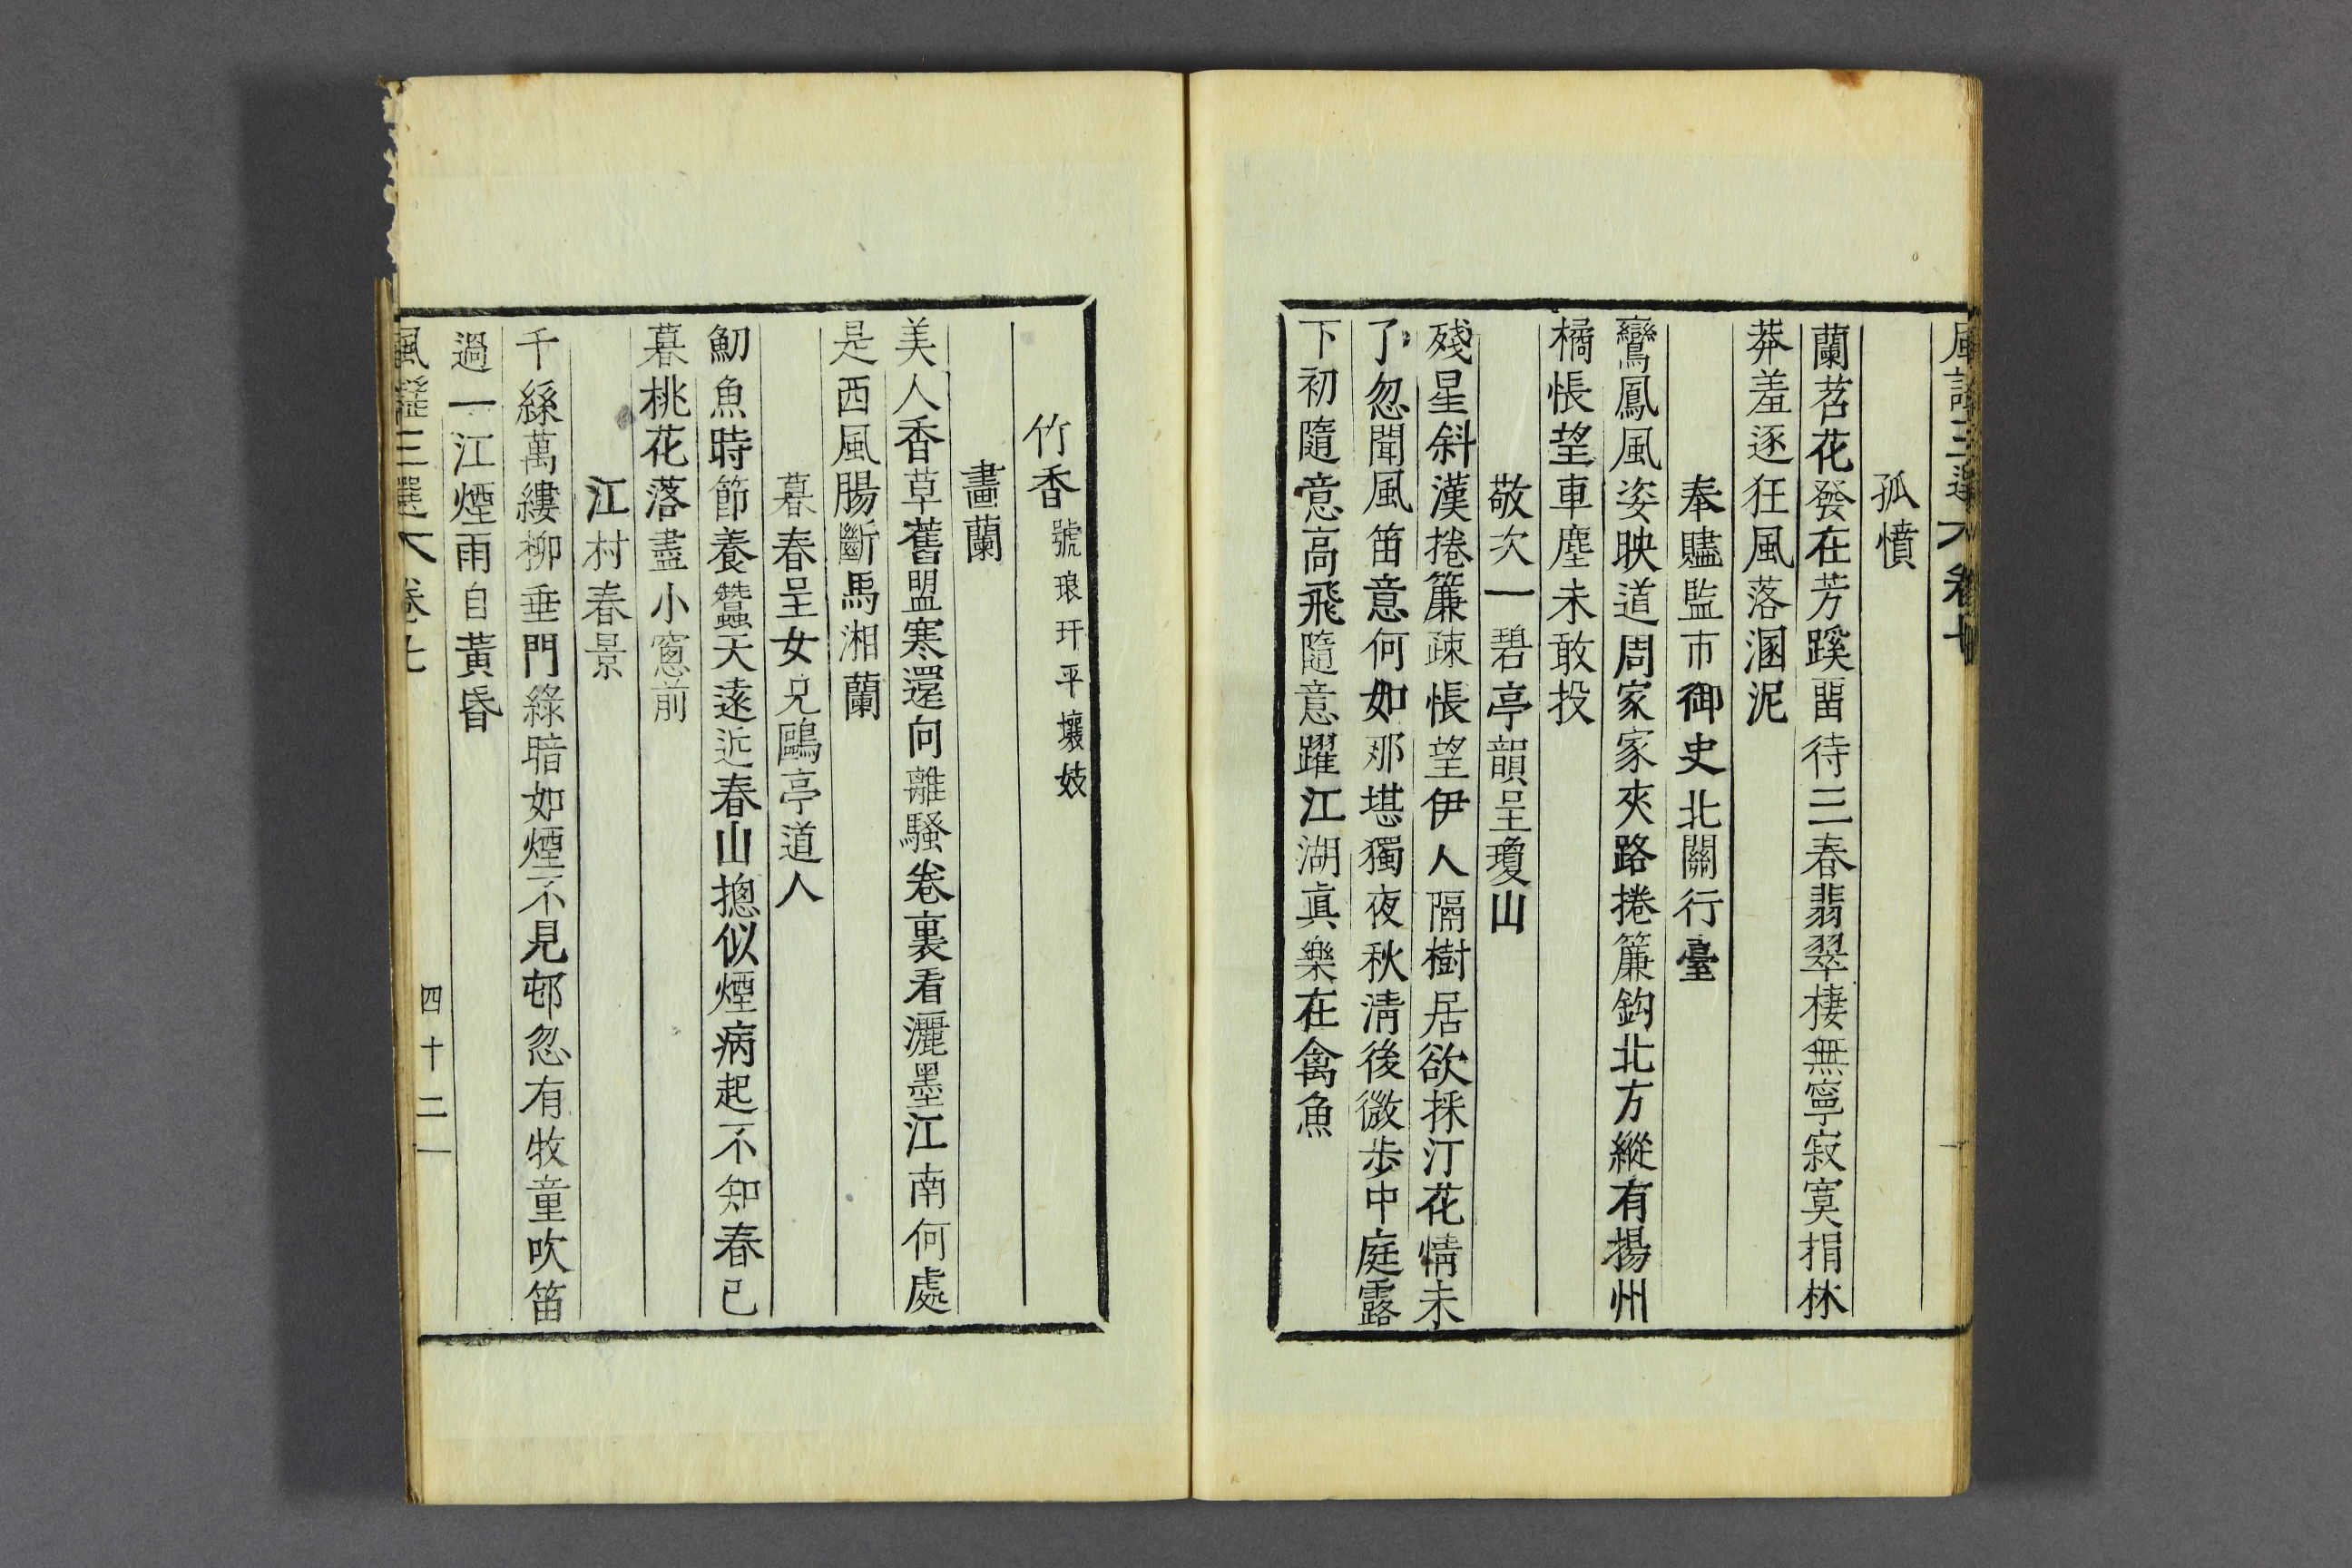 風謠三選 卷七
孤憤
蘭苕花發在芳蹊留待三春翡翠棲無寧寂寞捐林
莽羞逐狂風落溷泥
奉贐監市御史北關行臺
鸞鳳風姿映道周家家夾路捲簾鈎北方縱有揚州
橘悵望車塵未敢投
敬次一碧亭韻呈瓊山
殘星斜漢捲簾疎悵望伊人隔樹居欲採汀花情未
了忽聞風笛意何如那堪獨夜秋清後微步中庭露
下初隨意高飛隨意躍江湖眞樂在禽魚
竹香 號琅玕平壤妓
畵蘭
美人香草舊盟寒還向離騷卷裏看灑墨江南何處
是西風腸斷馬湘蘭
暮春呈女兄鷗亭道人
魛魚時節養蠶天遠近春山摠似煙病起不知春已
暮桃花落盡小窻前
江村春景
千絲萬縷柳垂門綠暗如煙不見邨忽有牧童吹笛
過一江煙雨自黃昏
風謠三選 卷七
四十二